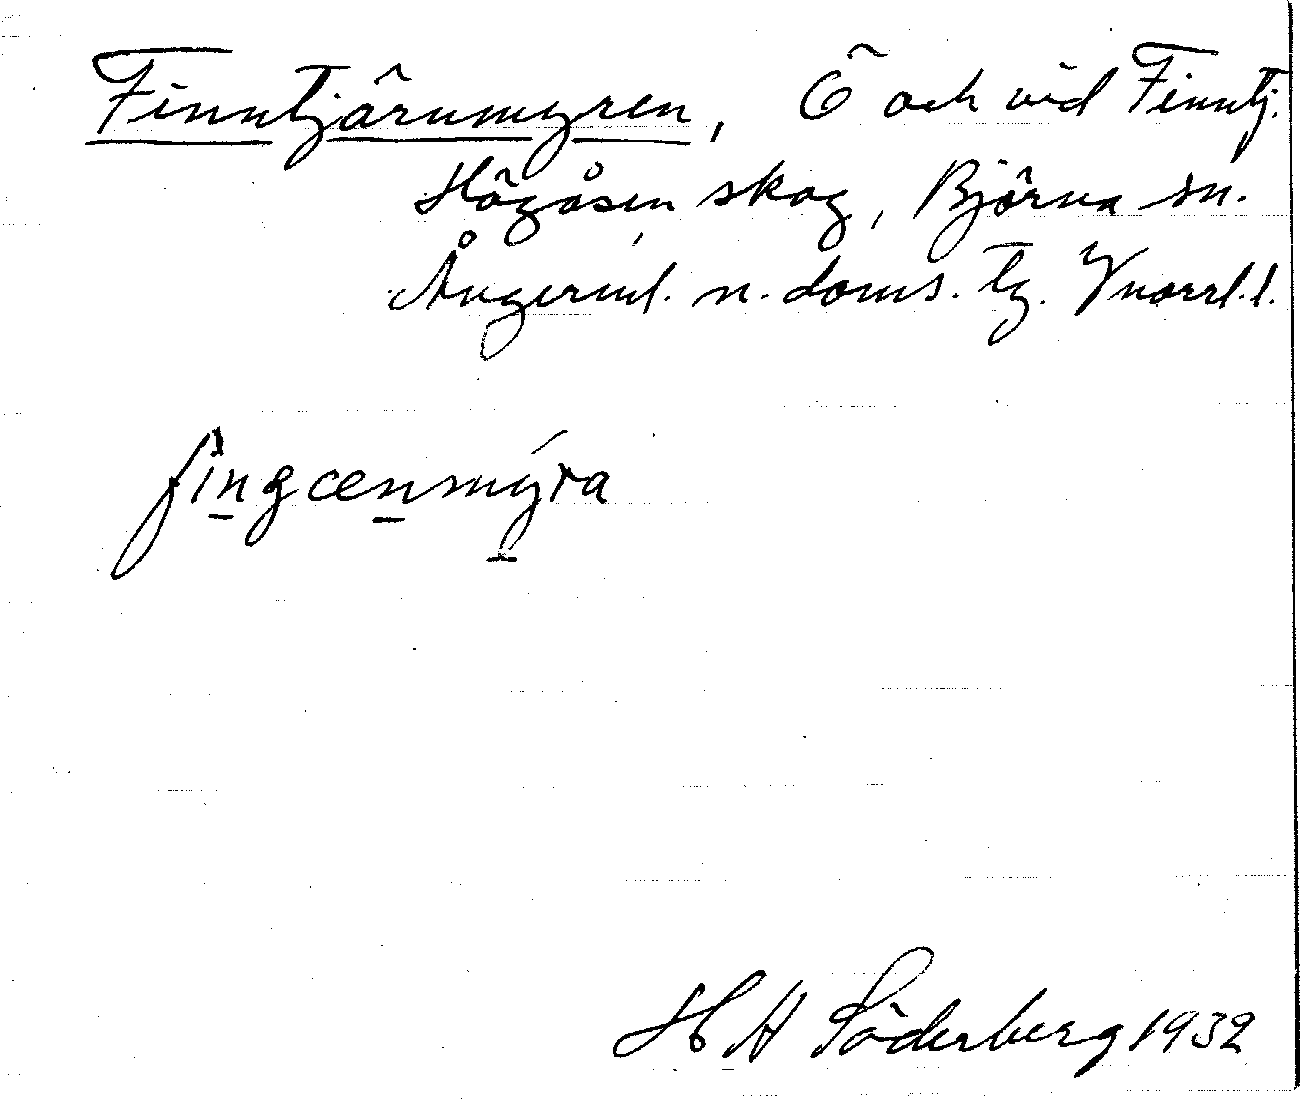 Finntjärnmyren, Ö och vid Finntj.
Högåsen, skog, Björna sn.
Ångerml. n. doms. tg. Vnorrl. l.
fìngcenmýra
H H Söderberg 1932